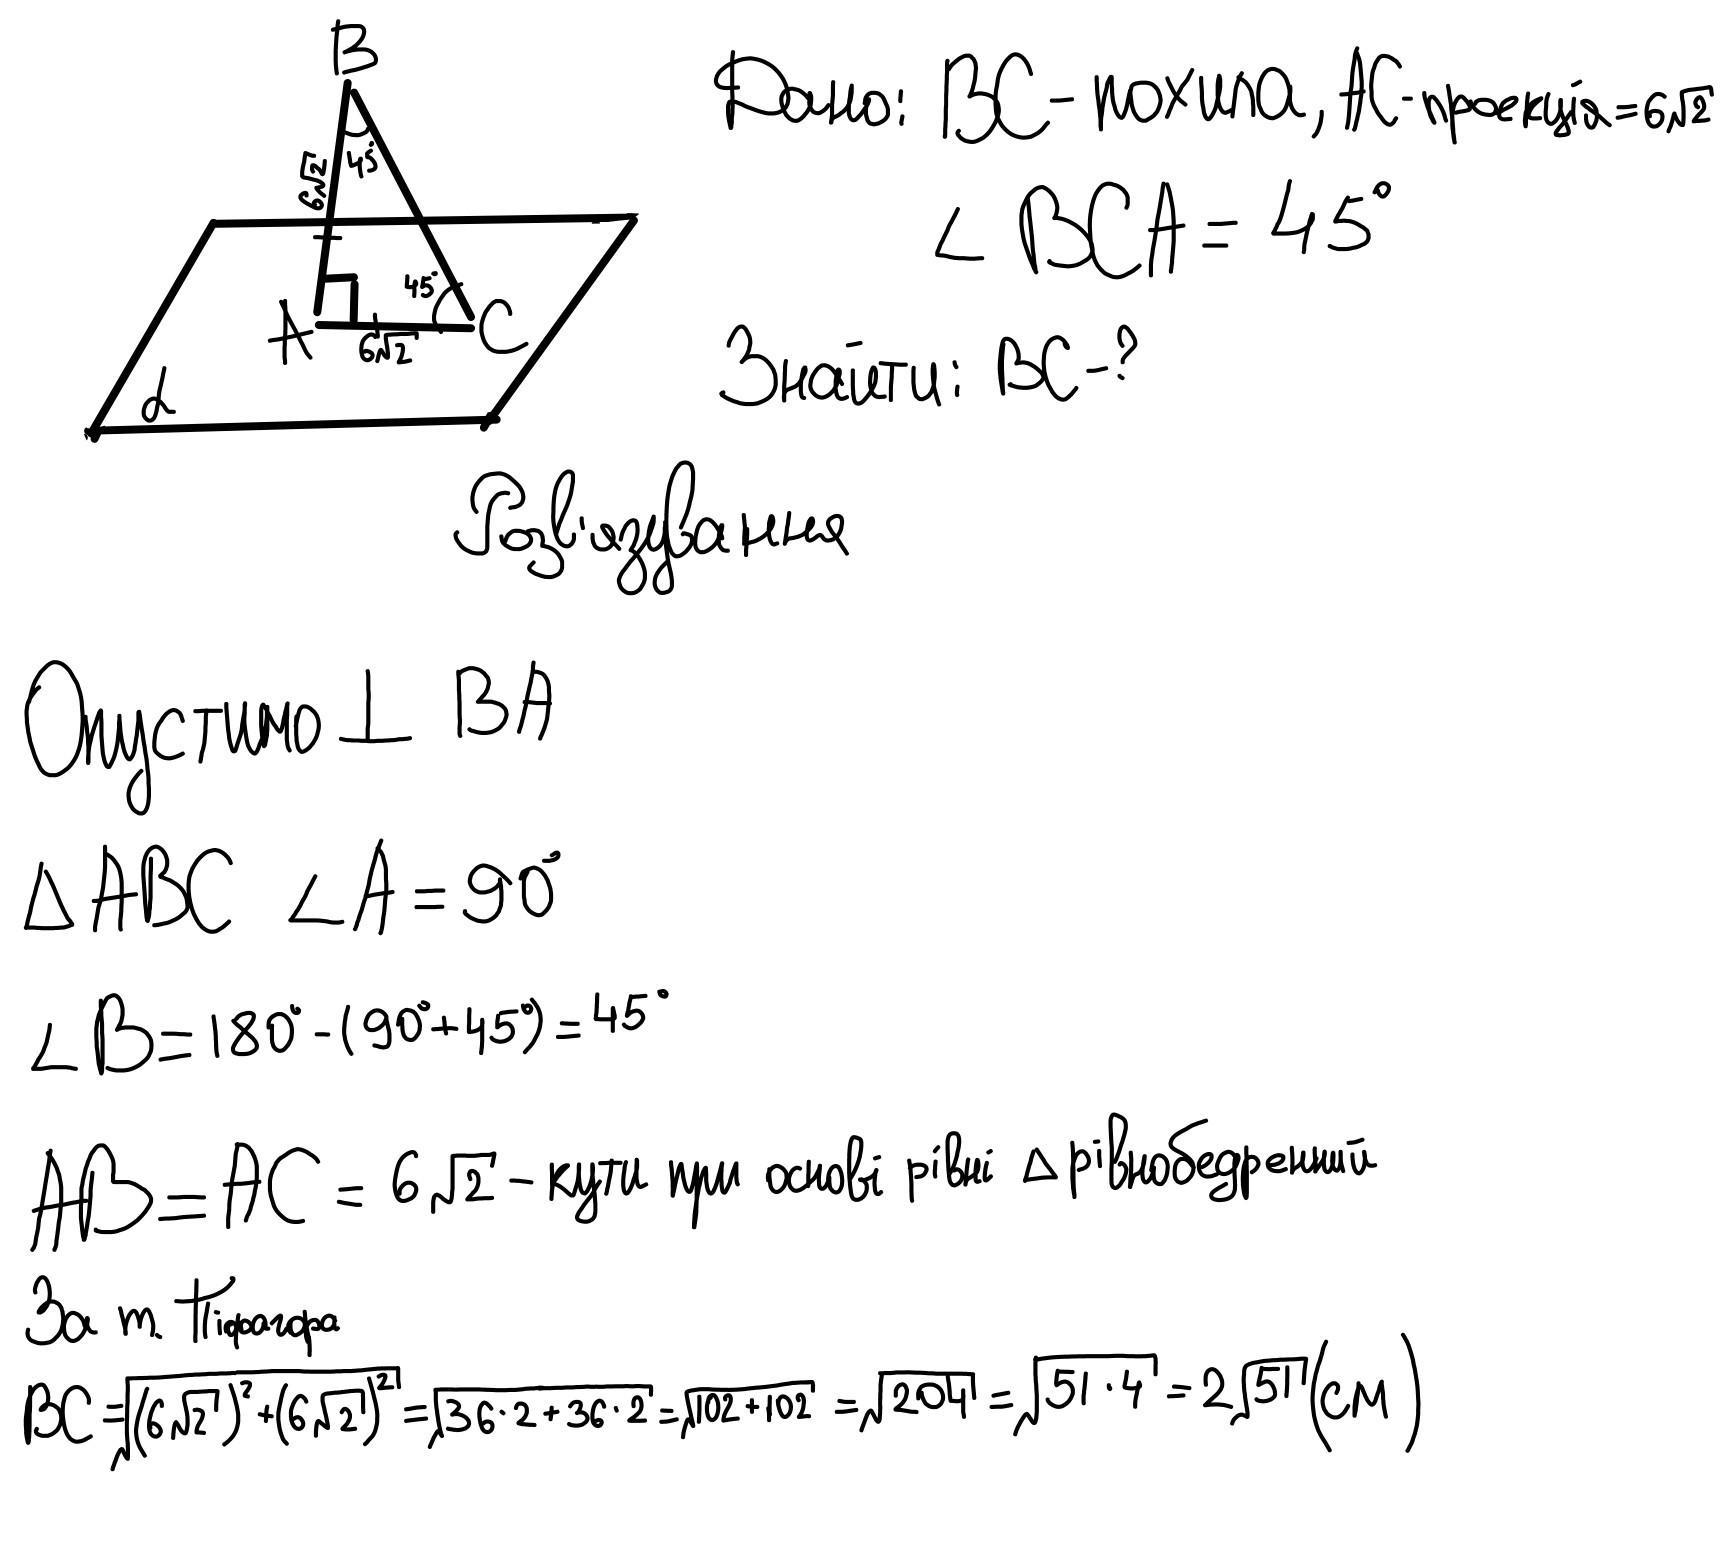 B
Дано: BC - похила, AC - проекція = 6√2
6√2
45°
∠ BCA = 45°
45°
A
C
6√2
α
Знайти: BC - ?
Розв'язування
Опустимо ⊥ BA
△ ABC ∠A = 90°
∠ B = 180° - (90° + 45°) = 45°
AB = AC = 6√2 - кути при основі рівні △ рівнобедренний
За т. Піфагора
BC = √((6√2)² + (6√2)²) = √(36·2 + 36·2) = √(102 + 102) = √204 = √(51·4) = 2√51 (см)